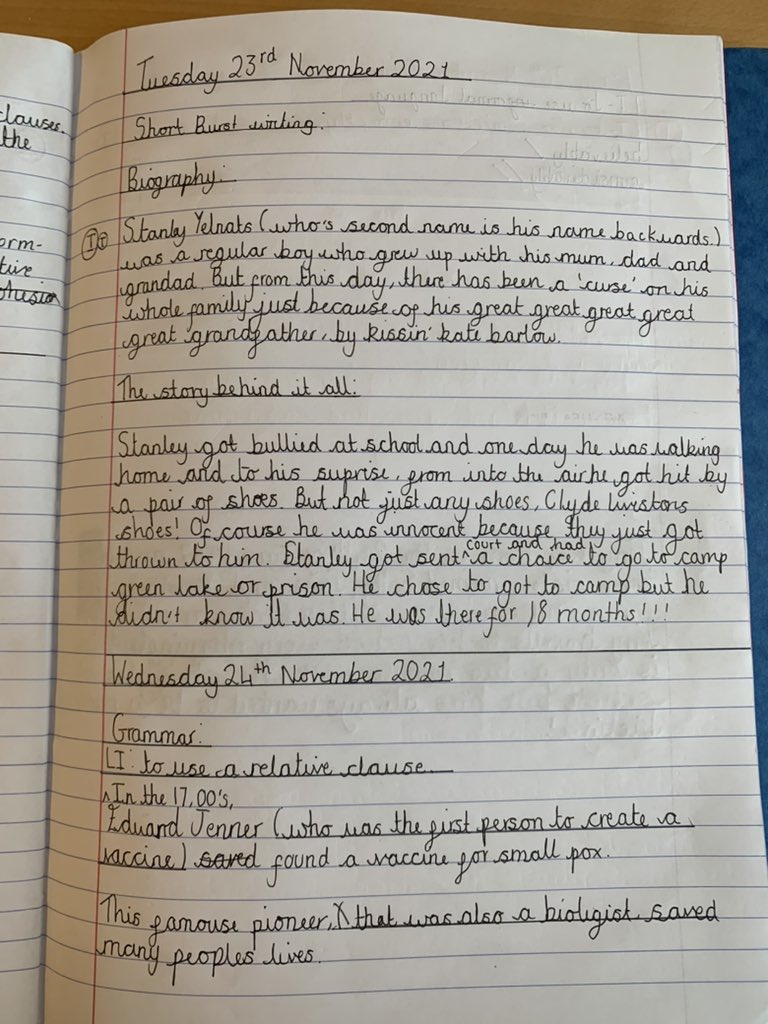 clauses.
the
orm-
tive
Tuesday 23rd November 2021
Short Burst writing:
Biography:
Stanly Yelnats (who's second name is his name backwards.)
was a regular boy who grew up with his mum, dad and
grandad. But from this day, there has been a 'curse' on his
whole family just because of his great great great great
great grandfather, by kissin' kate barlow.
The story behind it all:
Stanley got bullied at school and one day he was walking
home and to his suprise, from into the air he got hit by
a pair of shoes. But not just any shoes, Clyde livistons
shoes! Of course he was innocent because they just got
thrown to him. Stanley got sent ^court and had a choice to go to camp
green lake or prison. He chose to got to camp but he
didn't know it was. He was there for 18 months!!!
Wednesday 24th November 2021.
Grammar:
LI: to use a relative clause
^In the 17,00's,
Eduard Jenner (who was the first person to create a
vaccine) saved found a vaccine for small pox.
This famouse pioneer, that was also a bioligist, saved
many peoples lives.